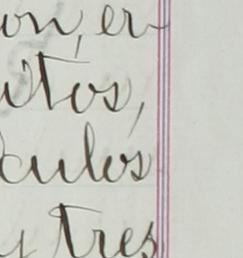 on, er
utos,
culos
y tres